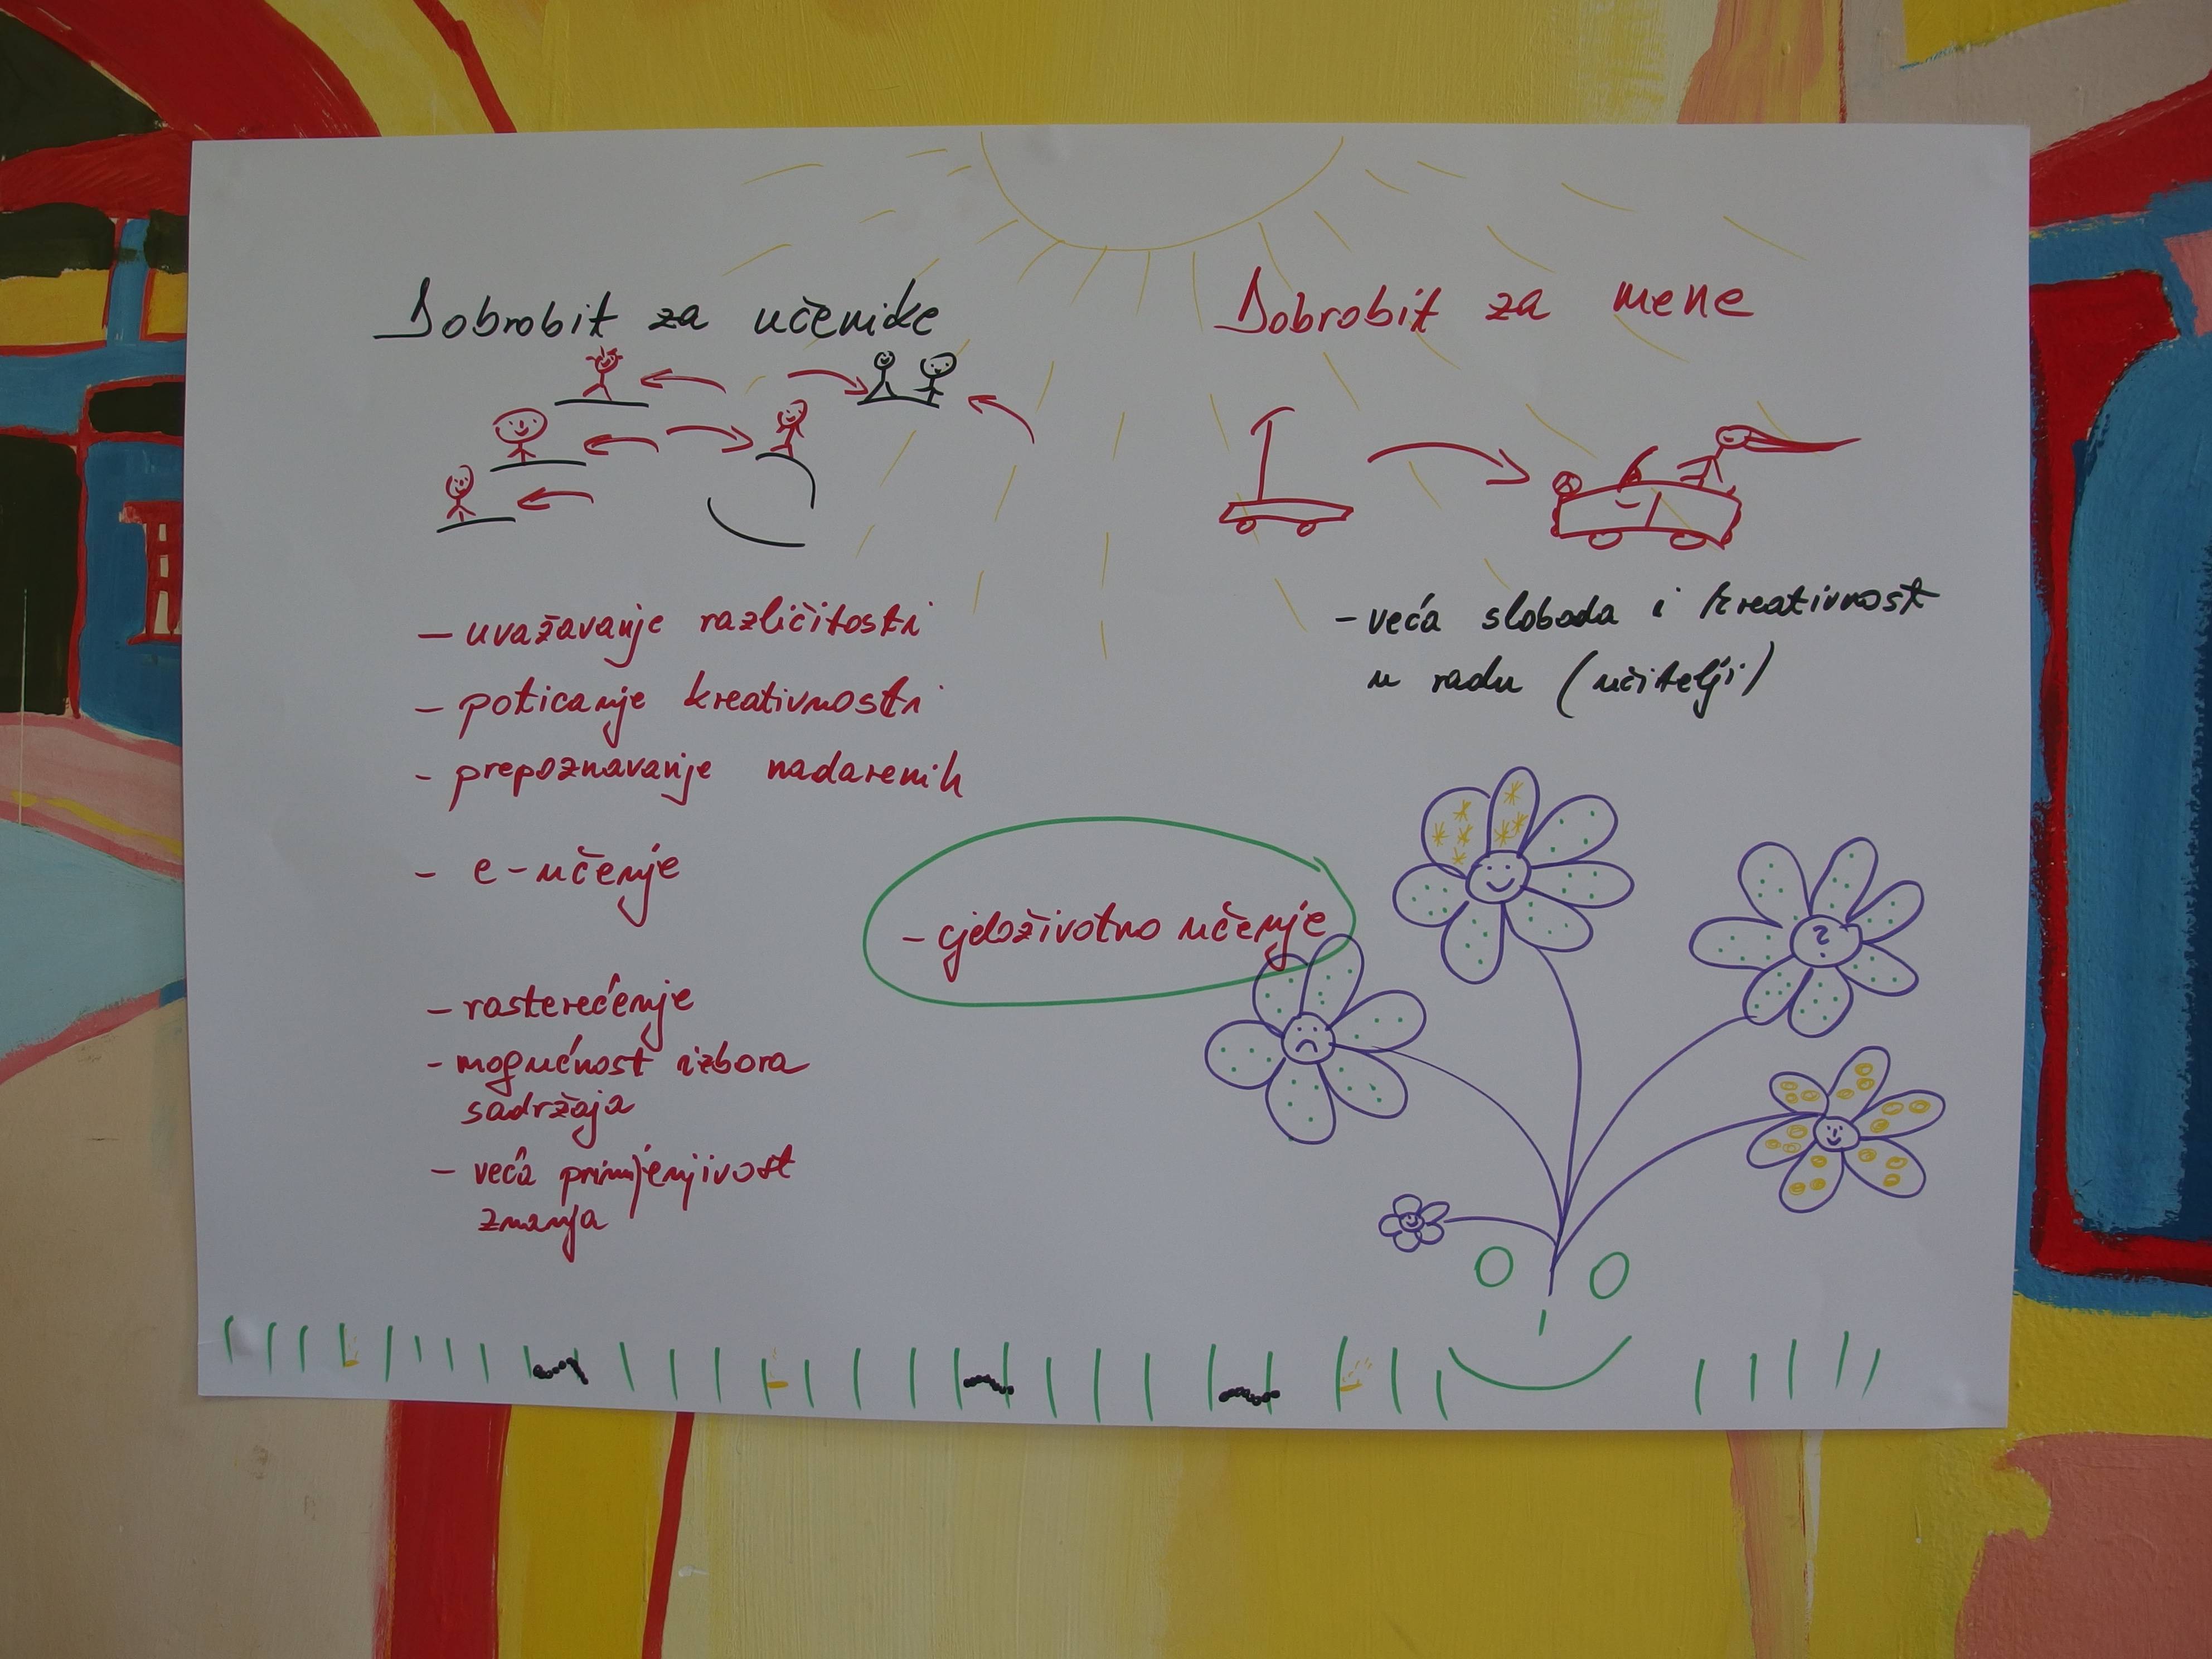 Dobrobit za učenike
- uvažavanje različitosti
- poticanje kreativnosti
- prepoznavanje nadarenih
- e-učenje
- rasterećenje
- mogućnost izbora
sadržaja
- veća primjenjivost
znanja
- cjeloživotno učenje
Dobrobit za mene
- veća sloboda i kreativnost
u radu (učitelji)
?